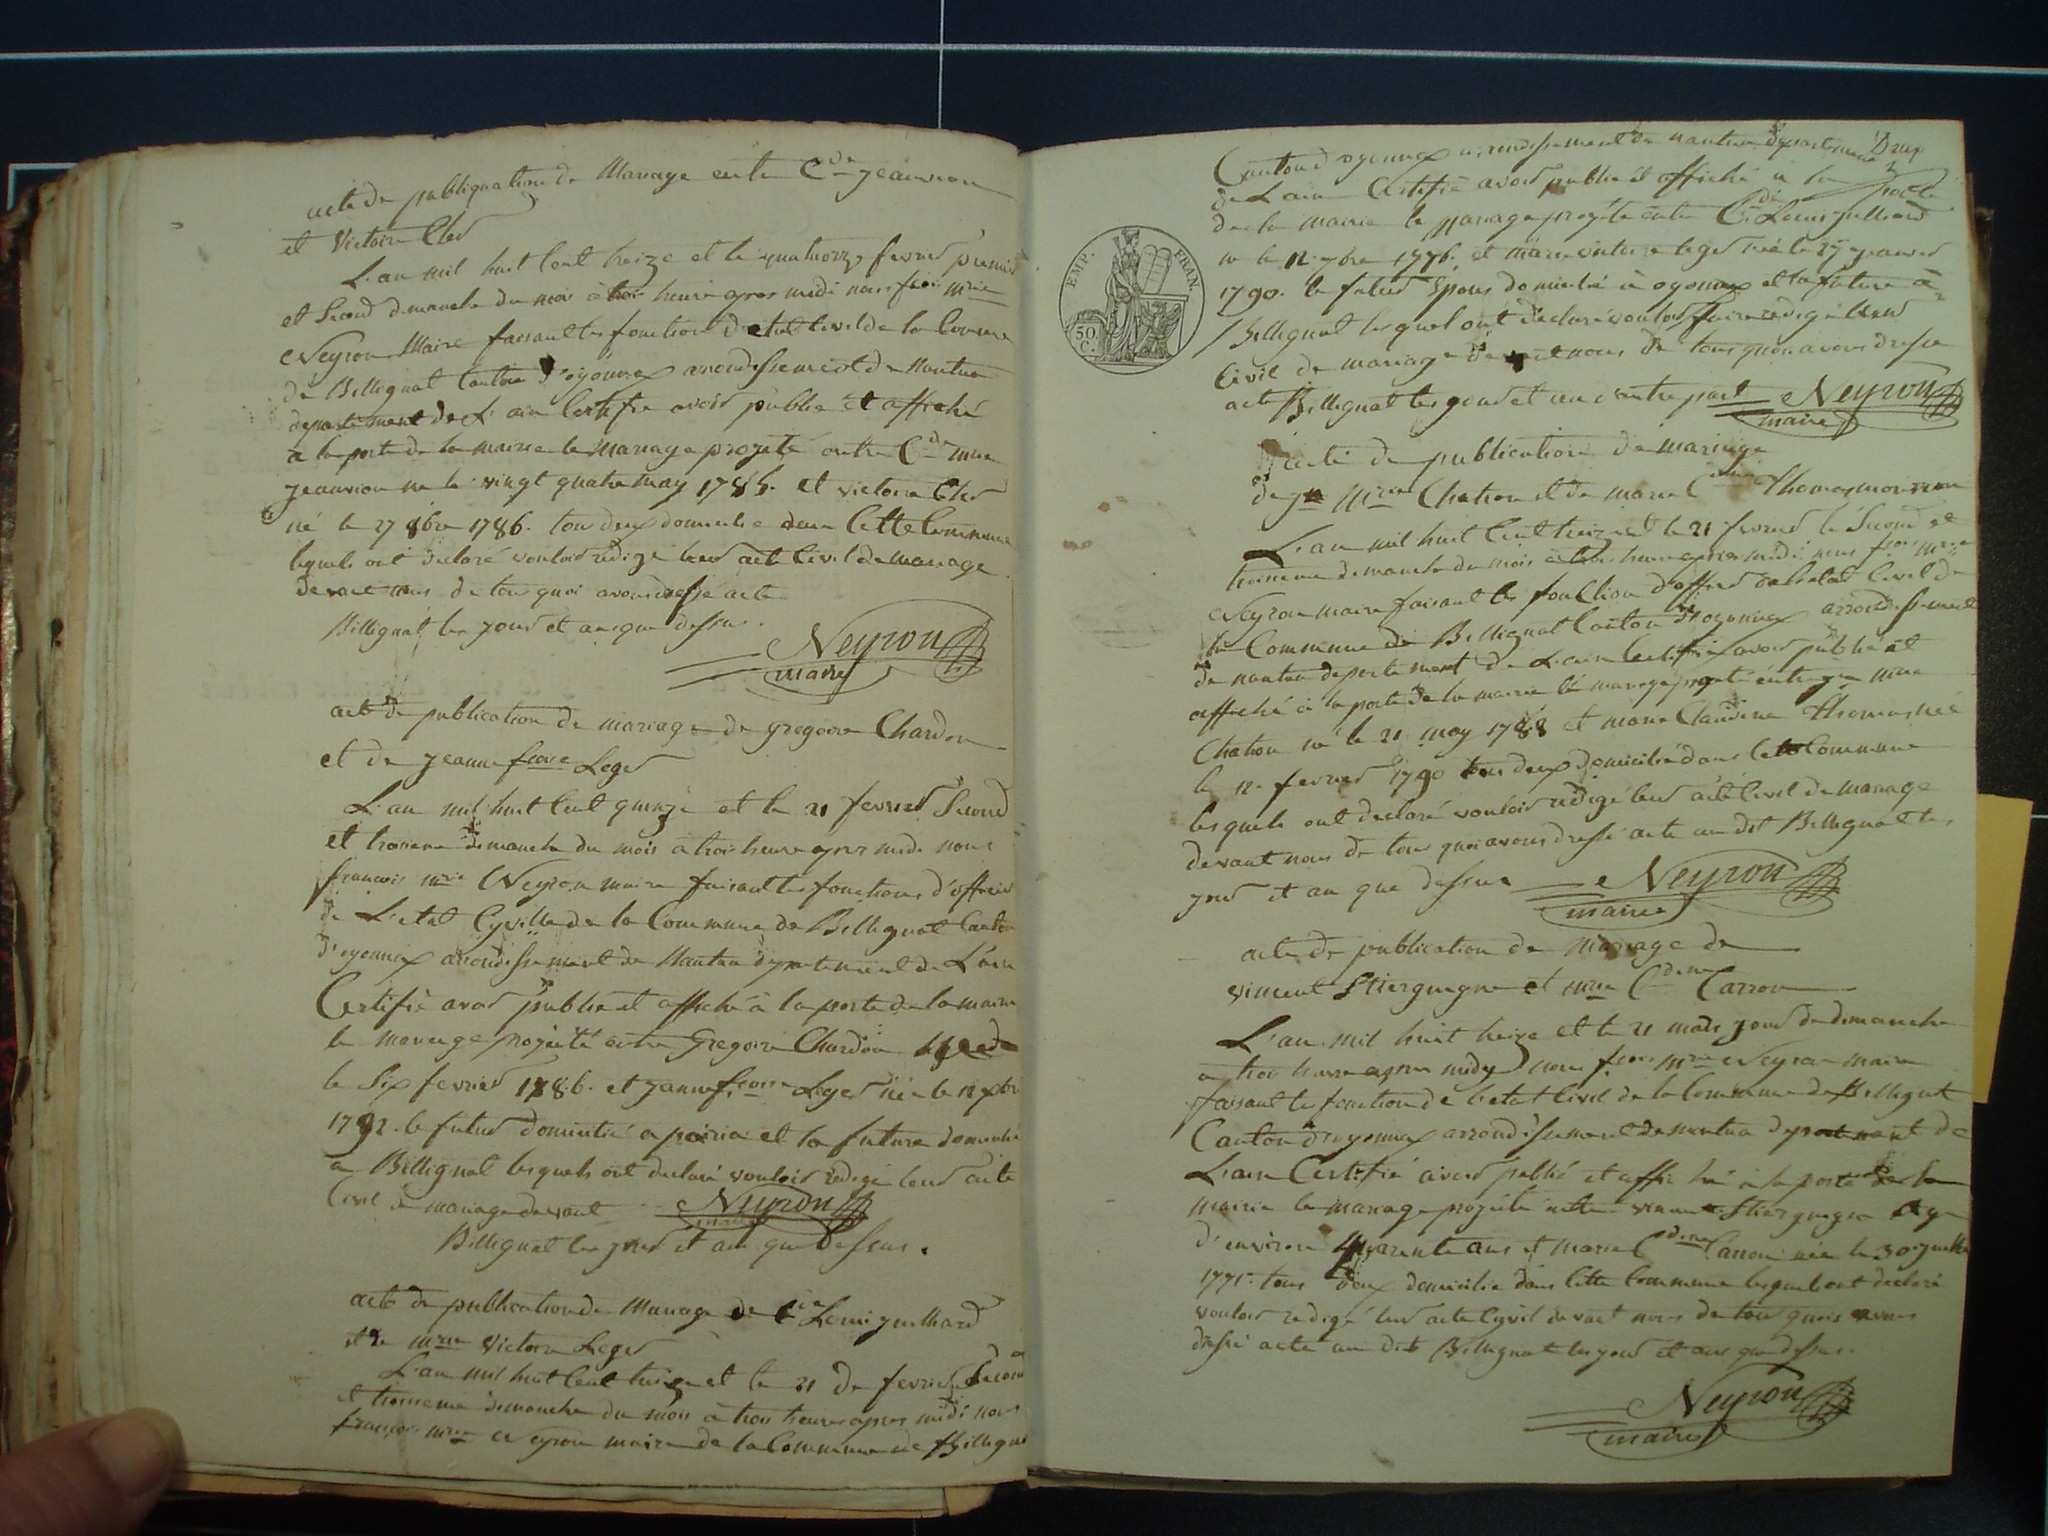 acte de publiquation de Mariage entre Cde jeannion
et Victoire Cler
L'an mil huit cent treize et le quatorze fevrier premier
et second dimanche du mois à trois heure apres midi nous fcois mrie
Neyron Maire faisant les fonctions d'etat civil de la Commune
de Bellignat Canton d'oyonnax arrondissement de Nantua
departement de L'ain Certifie avoir publié et affiché
a la porte de la mairie le mariage projeté entre Cde mrie
jeannion né le vingt quatre may 1785. et victoire Cler
né le 27 8bre 1786. tou deux domicilié dans cette Commune
lequels ont declaré vouloir redigé leur acte Civil de mariage
devant nous de tous quoi avons dressé acte
Billignat les jour et an que dessus.
Neyron
maire
acte de publication de mariage de gregoire Chardon
et de jeanne fcoise Leger
L'an mil huit cent quinze et le 21 fevrier Second
et troisieme dimanche du mois à trois heure apres midi nous
francois mrie Neyron maire faisant les fonctions d'officier
de L'etat Cyville de la Commune de Billignat Canton
d'oyonnax arrondissement de Nantua departement de L'ain
Certifié avoir publié et affiché à la porte de la mairie
le mariage projetté entre Gregoire Chardon
le Six fevrier 1786. et jeanne fcoise Leger née le 12 xbre
1792. le futur domicilié a et la future domicilié
a Billignat lesquels ont declaré vouloir redigé leur acte
Civil de mariage devant Neyron
maire
Billignat les jour et an que dessus.
acte de publication de Mariage de Louis juilliard
et de mrie Victoire Leger
L'an mil huit cent treize et le 21 de fevrier Second
et troisieme dimanche du mois à trois heures apres midi nous
francois mrie Neyron maire de la Commune de Billignat
Canton d'oyonnax arrondissement de nantua departement
de L'ain Certifié avoir publié et affiché a la porte
de la mairie le mariage projeté entre Cde Louis juilliard
né le 12. 7bre 1776. et marie victoire leger née le 27 janvier
1790. le futur Epoux domicilié à oyonnax et la future à
Billignat lesquel ont declaré vouloir faire redigé leur
Civil de mariage devant nous de tous quoi avons dressé
acte Billignat les jour et an d'autre part Neyron
maire
EMP. FRAN.
50 C.
acte de publication de mariage
de jn mrie Chation et de marie Cdine Thomas
L'an mil huit Cent treize et le 21 fevrier le Second et
troisieme dimanche du mois à trois heure apres midi nous fcois mrie
Neyron maire faisant les fonction d'officier de l'etat Civil de
la Commune de Billignat Canton d'oyonnax arrondissement
de nantua departement de L'ain Certifié avoir publié et
affiché à la porte de la mairie le mariage projeté entre jn mrie
Chation né le 21 may 1788 et marie Claudine Thomas née
le 12. fevrier 1790 tous deux domicilié dans cette Commune
lesquels ont declaré vouloir redigé leur acte Civil de mariage
devant nous de tous quoi avons dressé acte au dit Billignat les
jour et an que dessus Neyron
maire
acte de publication de mariage de
vincent et mrie Cdine Carron
L'an mil huit treize et le 21 mars jour de dimanche
a trois heure apres midy nous fcois mrie Neyron maire
faisant les fonction de l'etat Civil de la Commune de Billignat
Canton d'oyonnax arrondissement de nantua departement de
L'ain Certifié avoir publié et affiché à la porte de la
mairie le mariage projeté entre vincent age
d'environ quarente ans et marie Cdine Carron née le 30 juillet
1775. tous deux domicilié dans Cette Commune lesquel ont declaré
vouloir redigé leur acte Cyvil devant nous de tous quois avons
dressé acte au dit Billignat les jour et an que dessus.
Neyron
maire